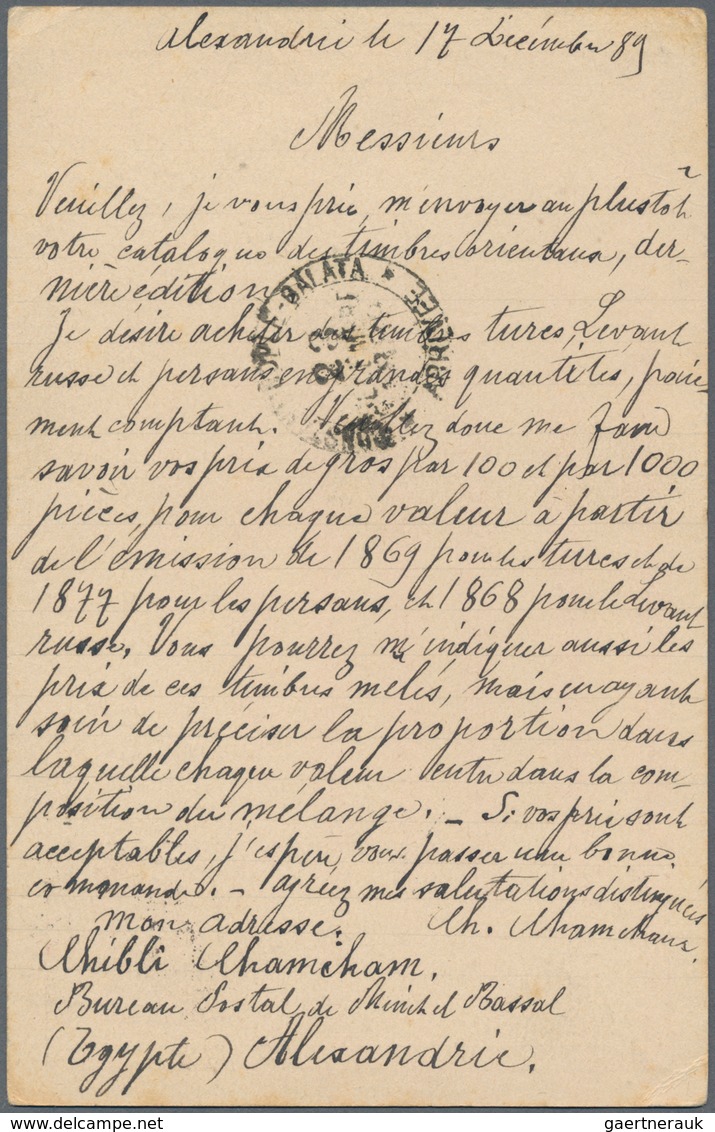 Alexandrie le 17 Décembre 89
Messieurs
Veuillez, je vous prie, m'envoyer au plustôt
votre catalogue des timbres orientaux, der-
nière édition
Je désire acheter des timbres turcs, Levant
russe et persans en grandes quantités, paie-
ment comptant. Veuillez donc me faire
savoir vos prix de gros par 100 et par 1000
pièces, pour chaque valeur à partir
de l'émission de 1869 pour les turcs et de
1877 pour les persans, et 1868 pour le Levant
russe. Vous pourrez m'indiquer aussi les
prix de ces timbres mêlés, mais en ayant
soin de préciser la proportion dans
laquelle chaque valeur entre dans la com-
position du mélange. _ Si vos prix sont
acceptables, j'espère vous passer une bonne
commande. _ agréez mes salutations distinguées
mon adresse. Ch. Chamcham.
Chibli Chamcham.
Bureau Postal de Minet el Bassal
(Egypte) Alexandrie.
GALATA * AGRENFE
gaertnerauk